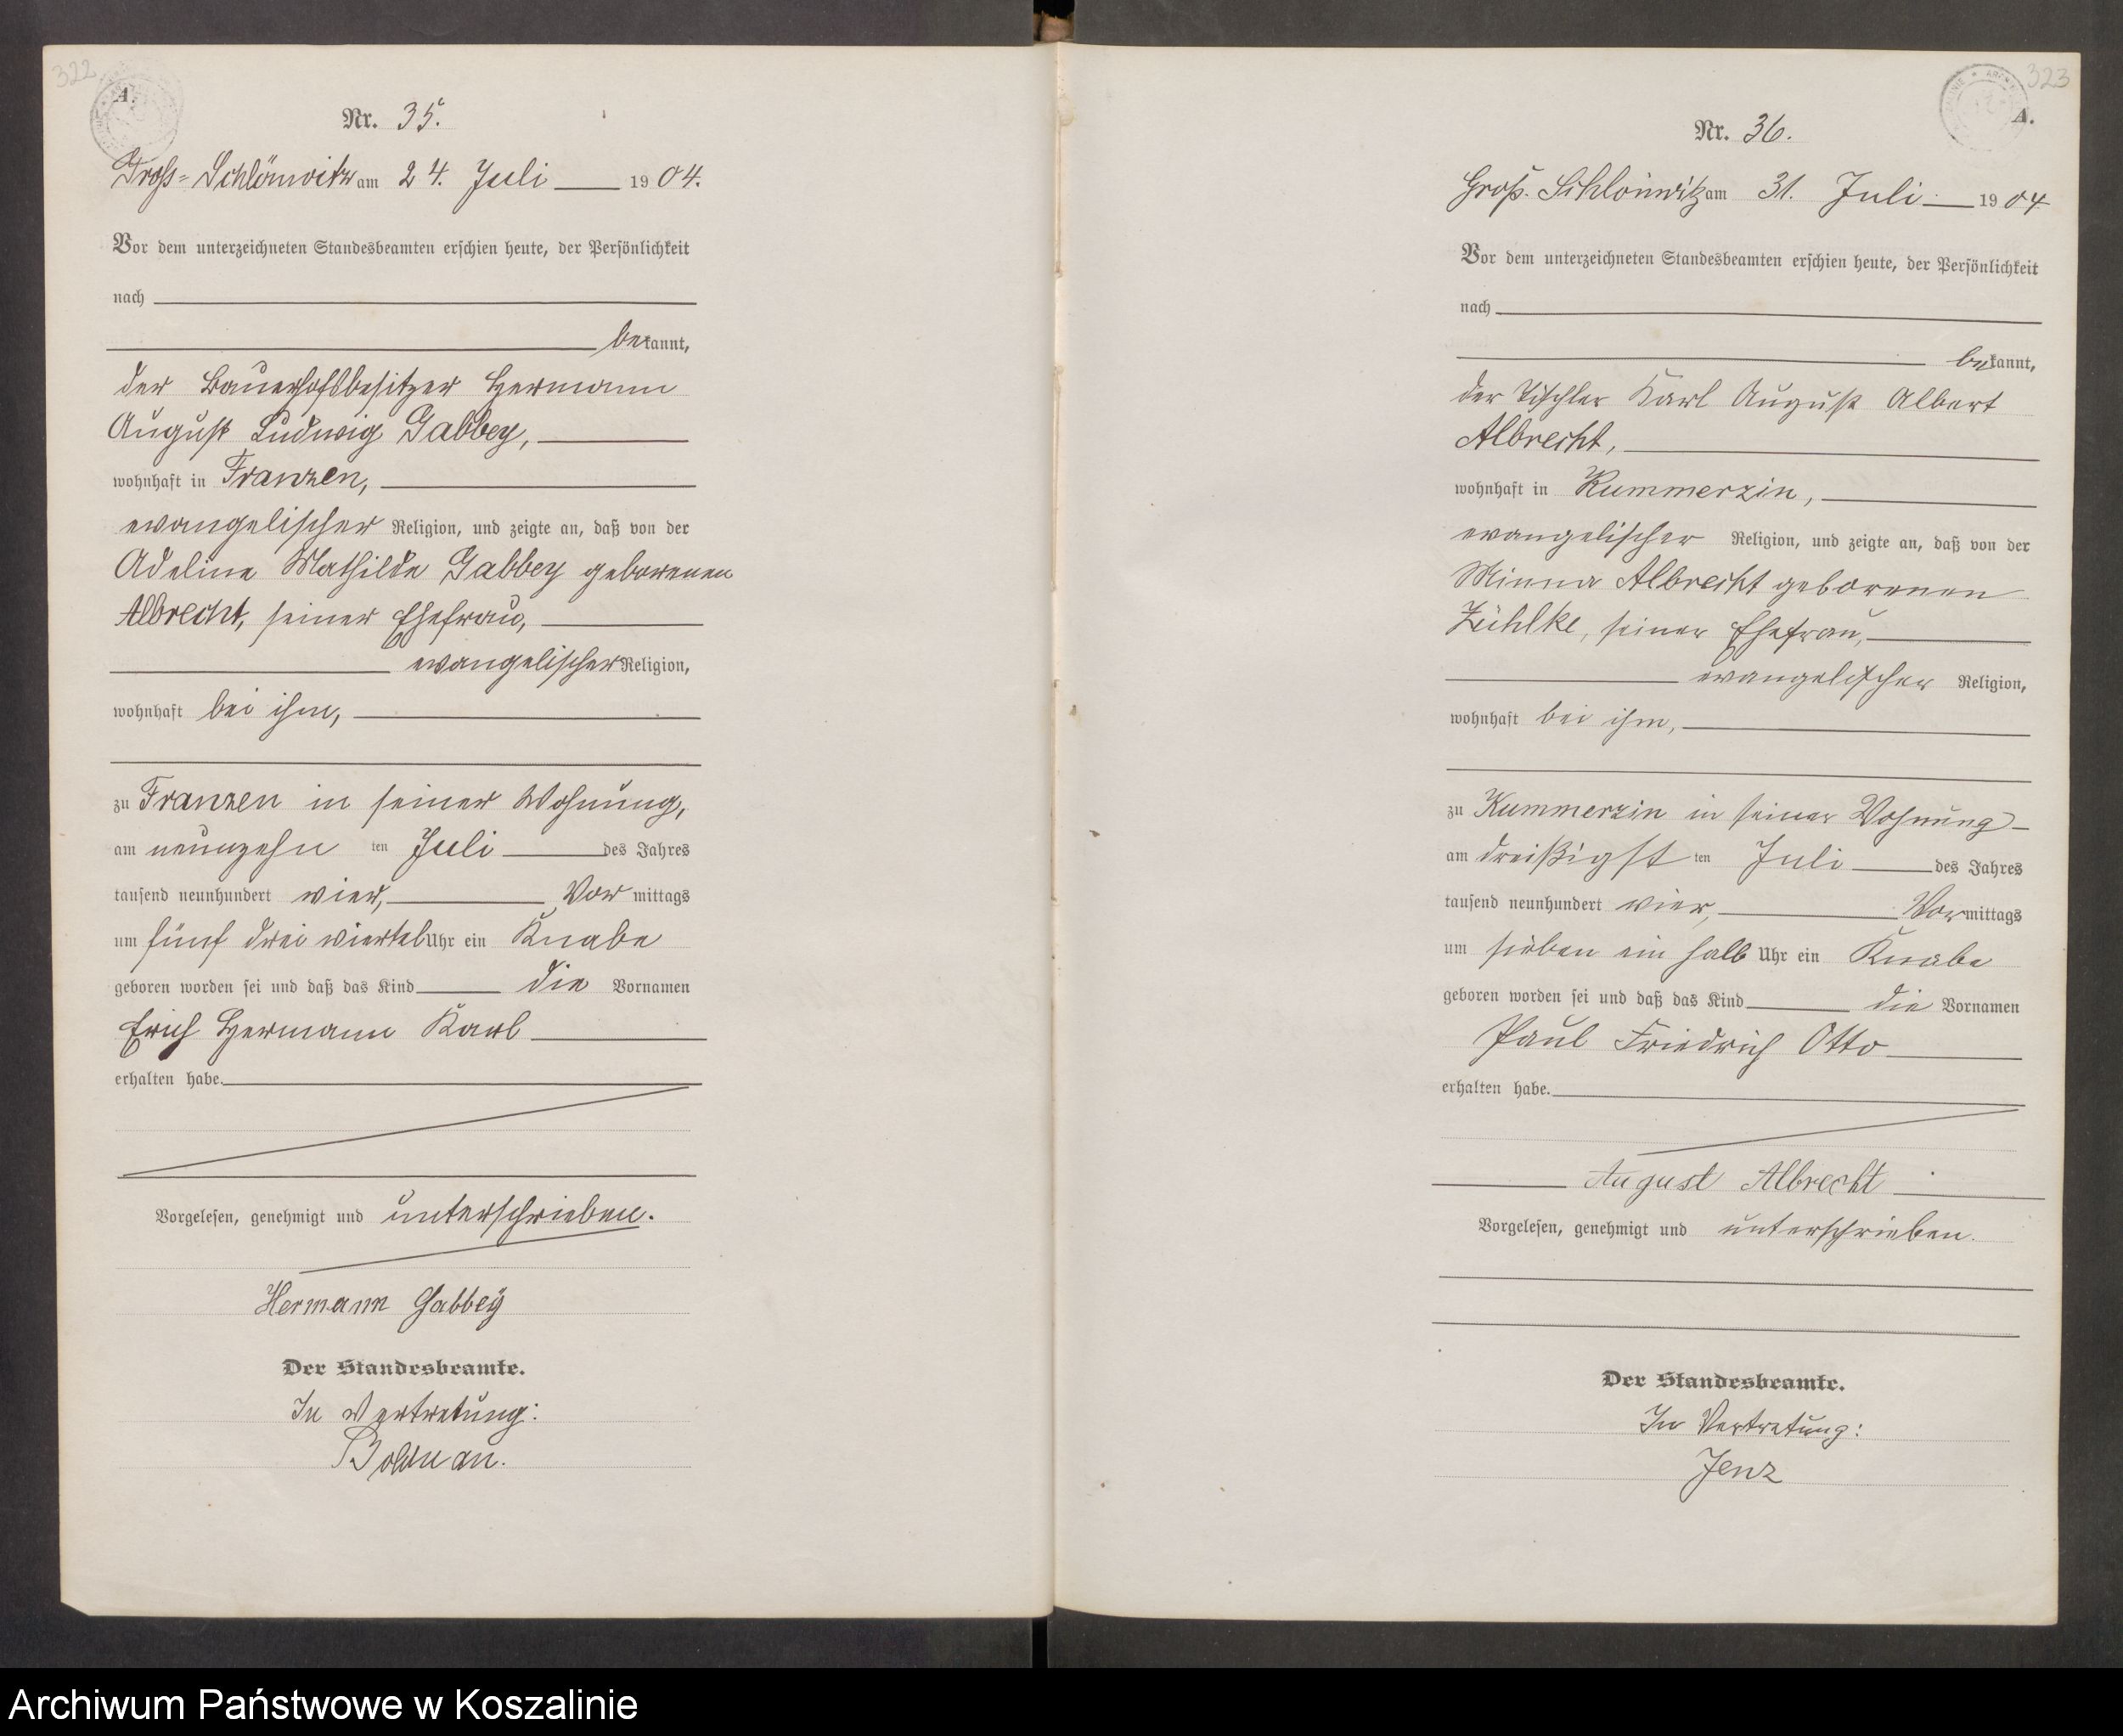 322
A.
Nr. 35.
Groß-Schlönwitz am 24. Juli 1904.
Vor dem unterzeichneten Standesbeamten erschien heute, der Persönlichkeit
nach
bekannt,
der Bauerhofsbesitzer Hermann
August Ludwig Gabbey,
wohnhaft in Franzen,
evangelischer Religion, und zeigte an, daß von der
Adeline Mathilde Gabbey geborenen
Albrecht, seiner Ehefrau,
evangelischer Religion,
wohnhaft bei ihm,
zu Franzen in seiner Wohnung,
am neunzehn ten Juli des Jahres
tausend neunhundert vier, Vormittags
um fünf drei viertel Uhr ein Knabe
geboren worden sei und daß das Kind die Vornamen
Erich Hermann Karl
erhalten habe.
Vorgelesen, genehmigt und unterschrieben.
Hermann Gabbey
Der Standesbeamte.
In Vertretung:
323
A.
Nr. 36.
Groß-Schlönwitz am 31. Juli 1904
Vor dem unterzeichneten Standesbeamten erschien heute, der Persönlichkeit
nach
bekannt,
der Tischler Karl August Albert
Albrecht,
wohnhaft in Kummerzin,
evangelischer Religion, und zeigte an, daß von der
Minna Albrecht geborenen
Zühlke, seiner Ehefrau,
evangelischer Religion,
wohnhaft bei ihm,
zu Kummerzin in seiner Wohnung
am dreißigst ten Juli des Jahres
tausend neunhundert vier, Vormittags
um sieben ein halb Uhr ein Knabe
geboren worden sei und daß das Kind die Vornamen
Paul Friedrich Otto
erhalten habe.
August Albrecht
Vorgelesen, genehmigt und unterschrieben.
Der Standesbeamte.
In Vertretung:
Jenz
Archiwum Państwowe w Koszalinie